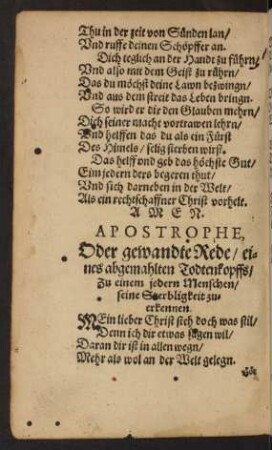 Thu in der zeit von Sünden lan/
Vnd ruffe deinen Schöpffer an.
Dich teglich an der Handt zu führn/
Vnd also mit dem Geist zu rührn/
Das du möchst deine Lawn bezwingn/
Vnd aus dem streit das Leben bringn.
So wird er dir den Glauben mehrn/
Dich seiner macht vortrawen lehrn/
Vnd helffen das du als ein Fürst
Des Himels/ selig sterben wirst.
Das helff vnd geb das höchste Gut/
Eim jedern ders begeren thut/
Vnd sich darneben in der Welt/
Als ein rechtschaffner Christ vorhelt.
A M E N.
APOSTROPHE,
Oder gewandte Rede/ ei-
nes abgemahlten Todtenkopffs/
Zu einem jedern Menschen/
seine Sterbligkeit zu-
erkennen.
MEin lieber Christ sieh doch was stil/
Denn ich dir etwas sagen wil/
Daran dir ist in allen wegn/
Mehr als wol an der Welt gelegn.